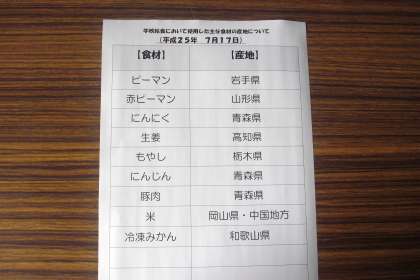 学校給食において使用した主な食材の産地について
（平成２５年　７月１７日）
【食材】　【産地】
ピーマン　岩手県
赤ピーマン　山形県
にんにく　青森県
生姜　高知県
もやし　栃木県
にんじん　青森県
豚肉　青森県
米　岡山県・中国地方
冷凍みかん　和歌山県